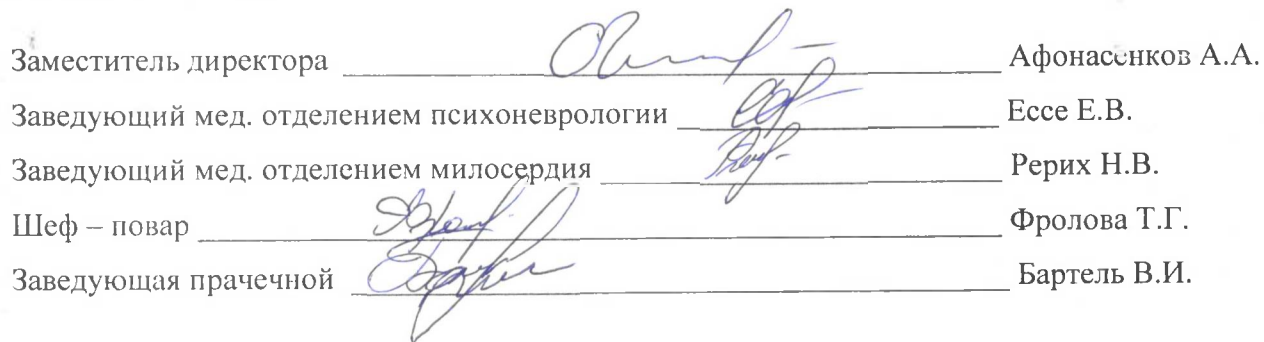 Заместитель директора Афонасенков А.А.
Заведующий мед. отделением психоневрологии Ессе Е.В.
Заведующий мед. отделением милосердия Рерих Н.В.
Шеф – повар Фролова Т.Г.
Заведующая прачечной Бартель В.И.